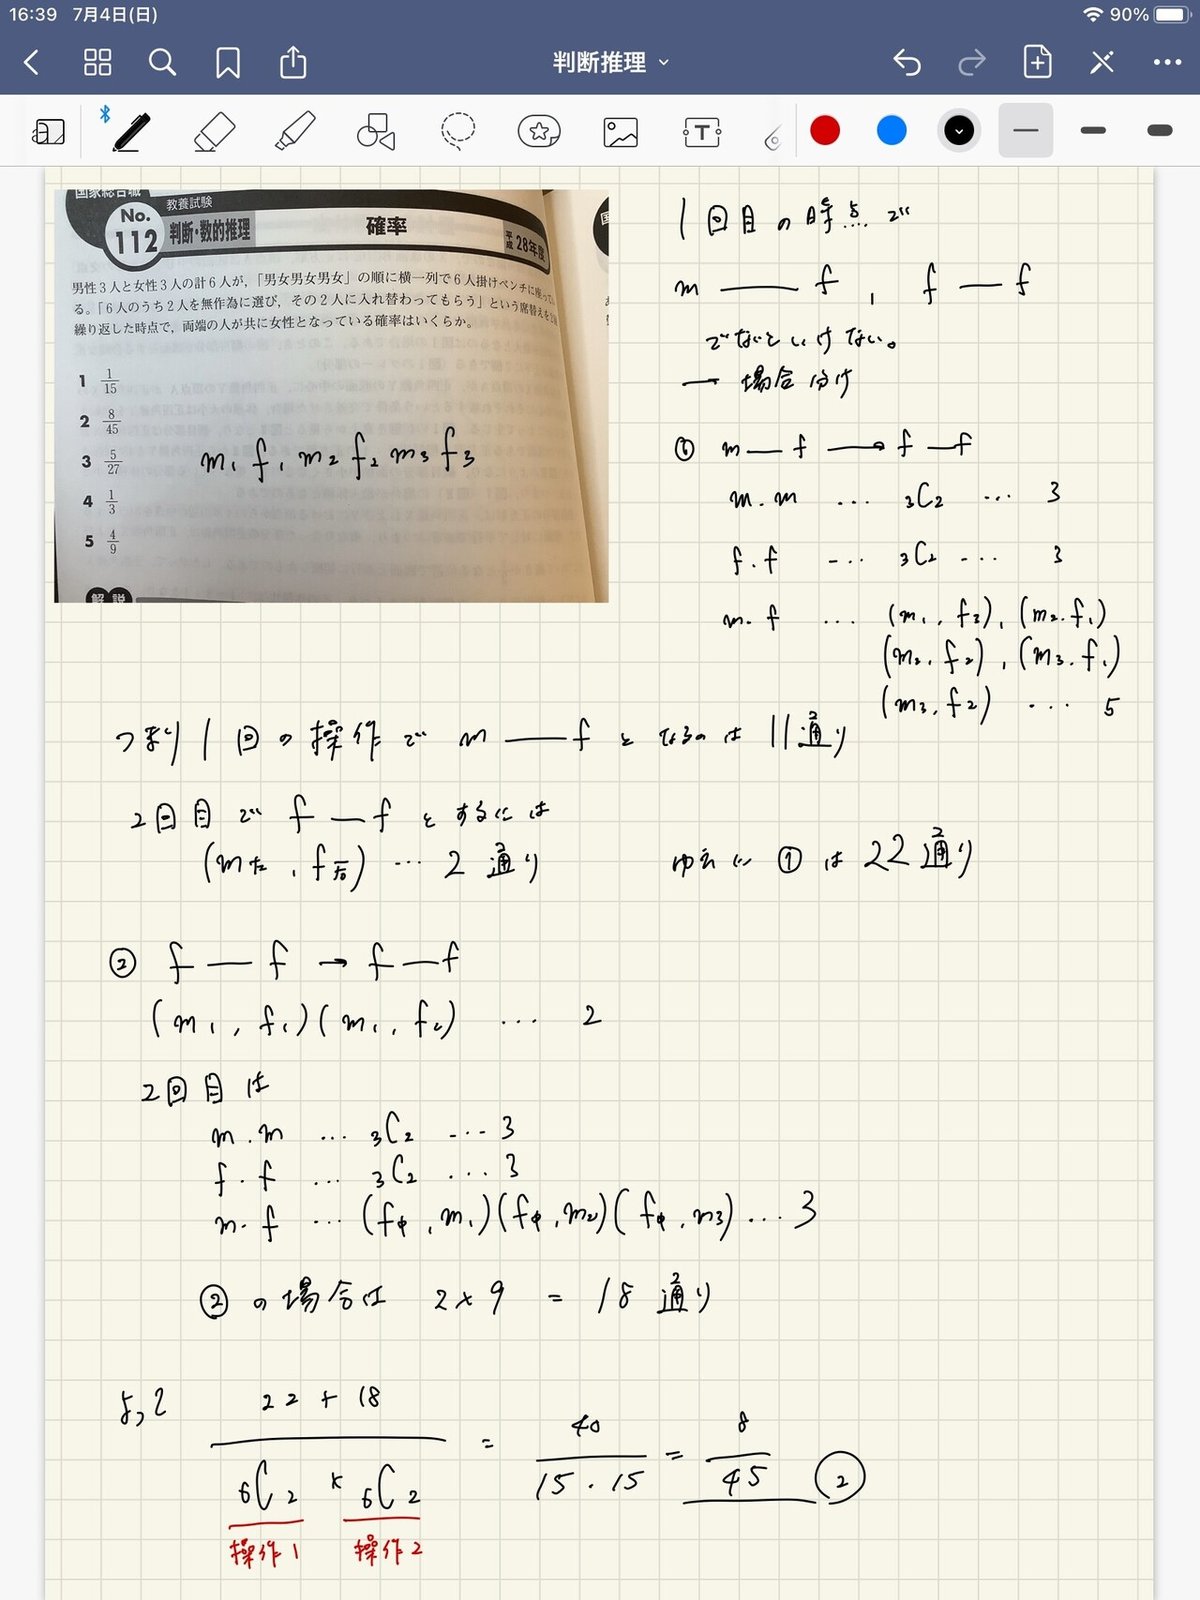 16:39 7月4日(日)
90%
判断推理
国家総合職
教養試験
No.
112
判断・数的推理
確率
平成28年度
男性3人と女性3人の計6人が,「男女男女男女」の順に横一列で6人掛けベンチに座ってい
る。「6人のうち2人を無作為に選び,その2人に入れ替わってもらう」という席替えを2回
繰り返した時点で,両端の人が共に女性となっている確率はいくらか。
1 1/15
2 8/45
3 5/27
4 1/3
5 4/9
解説
m₁ f₁ m₂ f₂ m₃ f₃
1回目の時点で
m — f , f — f
でないといけない。
→ 場合分け
① m — f → f — f
m.m … ₃C₂ … 3
f.f … ₃C₂ … 3
m.f … (m₁, f₃), (m₂.f₁)
(m₂.f₂), (m₃.f₁)
(m₃.f₂) … 5
つまり1回の操作で m — f となるのは 11通り
2回目で f — f とするには
(m左, f右) … 2通り
ゆえに ① は 22通り
② f — f → f — f
(m₁, f₁)(m₁, f₂) … 2
2回目は
m.m … ₃C₂ … 3
f.f … ₃C₂ … 3
m.f … (f中, m₁)(f中, m₂)(f中, m₃) … 3
②の場合は 2×9 = 18通り
よって (22 + 18)/(₆C₂ × ₆C₂) = 40/(15・15) = 8/45 ②
操作1 操作2